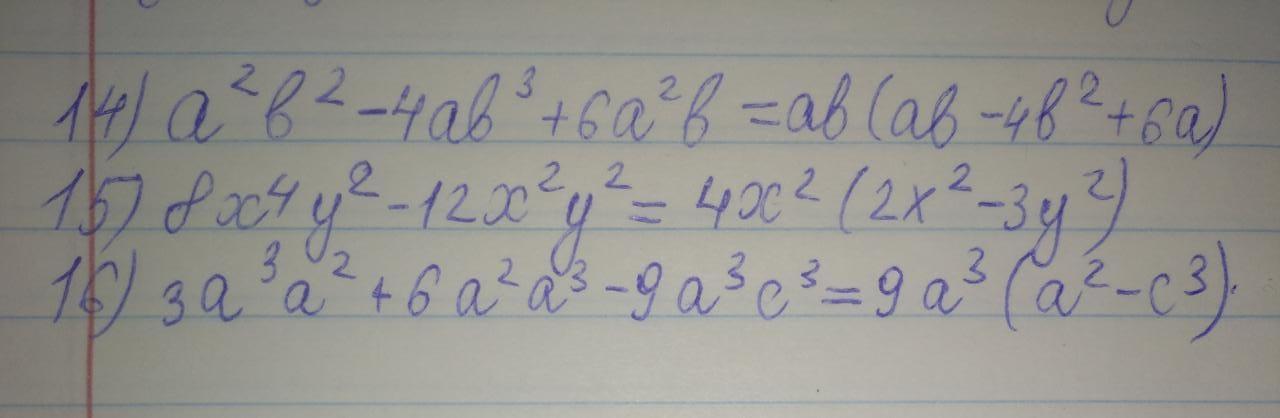 14) a²b² - 4ab³ + 6a²b = ab(ab - 4b² + 6a)
15) 8x⁴y² - 12x²y² = 4x²(2x² - 3y²)
16) 3a³a² + 6a²a³ - 9a³c³ = 9a³(a² - c³).